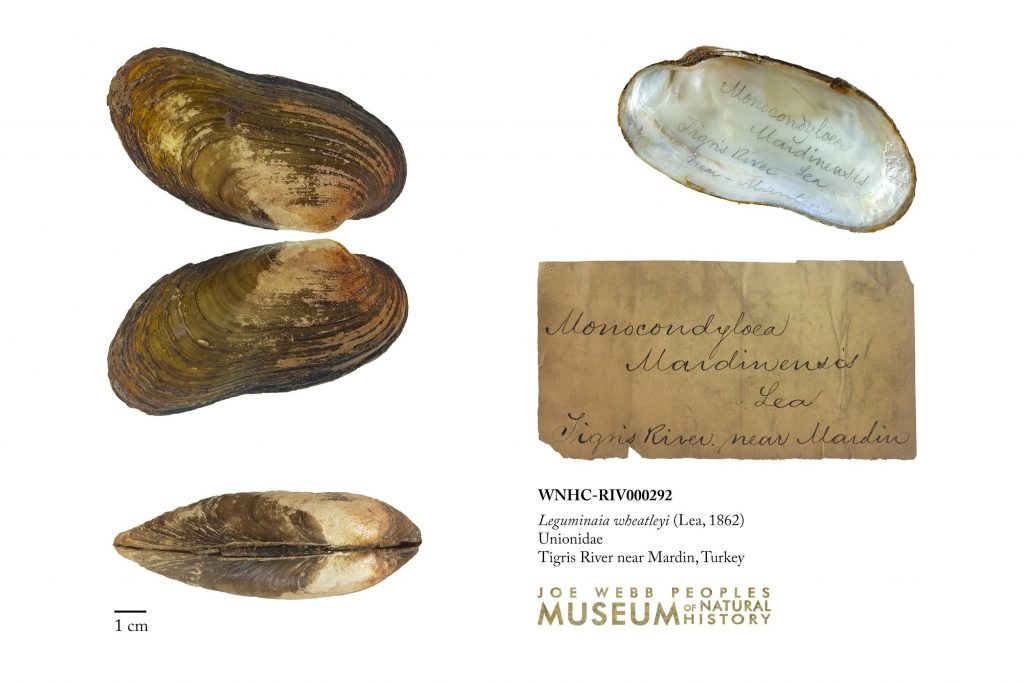 Monocondyloea
Mardinensis
Lea
Tigris River
near - Mardin
Monocondyloea
Mardinensis
Lea
Tigris River near Mardin
WNHC-RIV000292
Leguminaia wheatleyi (Lea, 1862)
Unionidae
Tigris River near Mardin, Turkey
JOE WEBB PEOPLES
MUSEUM OF NATURAL HISTORY
1 cm